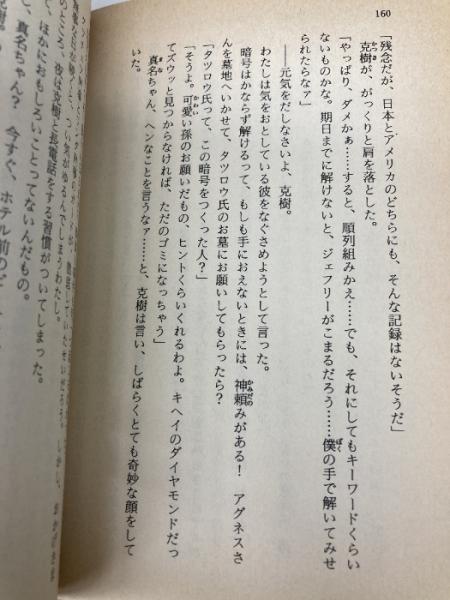 160
「残念だが、日本とアメリカのどちらにも、そんな記録はないそうだ」
克樹が、がっくりと肩を落とした。
「やっぱり、ダメかぁ……すると、順列組みかえ……でも、それにしてもキーワードくらい
ないものかな。期日までに解けないと、ジェフリーがこまるだろう……僕の手で解いてみせ
られたらなァ」
――元気をだしなさいよ、克樹。
わたしは気をおとしている彼をなぐさめようとして言った。
暗号はかならず解けるって、もしも手におえないときには、神頼みがある！　アグネスさ
んを墓地へいかせて、タツロウ氏のお墓にお願いしてもらったら？
「タツロウ氏って、この暗号をつくった人？」
「そうよ。可愛い孫のお願いだもの、ヒントくらいくれるわよ。キヘイのダイヤモンドだっ
てズウッと見つからなければ、ただのゴミになっちゃう」
真名ちゃん、ヘンなことを言うなァ……と、克樹は言い、しばらくとても奇妙な顔をして
いた。
つい気がゆるんでしまうわたし。
のところ、夜は克樹と長電話をする習慣がついてしまった。
く、ほかにおもしろいことってないんだもの。
真名ちゃん？　今すぐ、ホテル前の